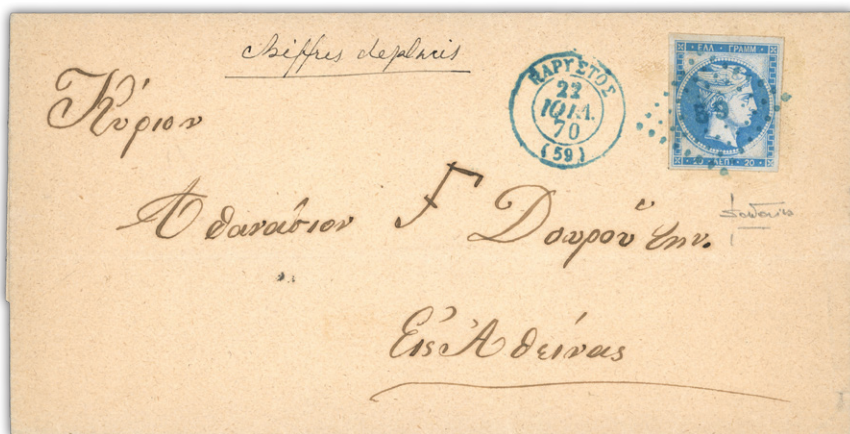 chiffres deplacés
ΚΑΡΥΣΤΟΣ
22
ΙΟΥΛ.
70
(59)
ΕΛΛ ΓΡΑΜΜ
59
20 ΛΕΠ. 20
Κύριον
Αθανάσιον Γ Δουρούτην.
Εις Αθείνας